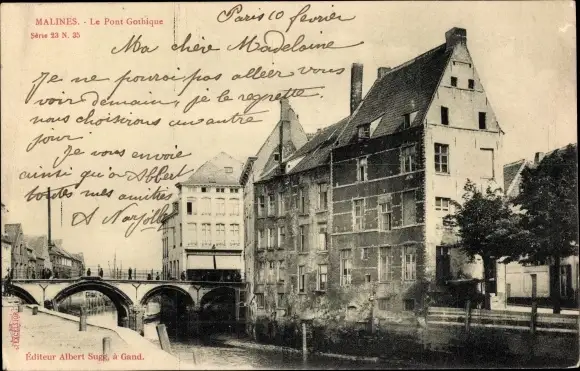 MALINES. - Le Pont Gothique
Série 23 N. 35
Paris 10 février
Ma chère Madelaine
Je ne pourrai pas aller vous
voir demain, je le regrette
nous choisirons un autre
jour
Je vous envoie
ainsi qu'à
toutes mes amitiés
A
Éditeur Albert Sugg, à Gand.